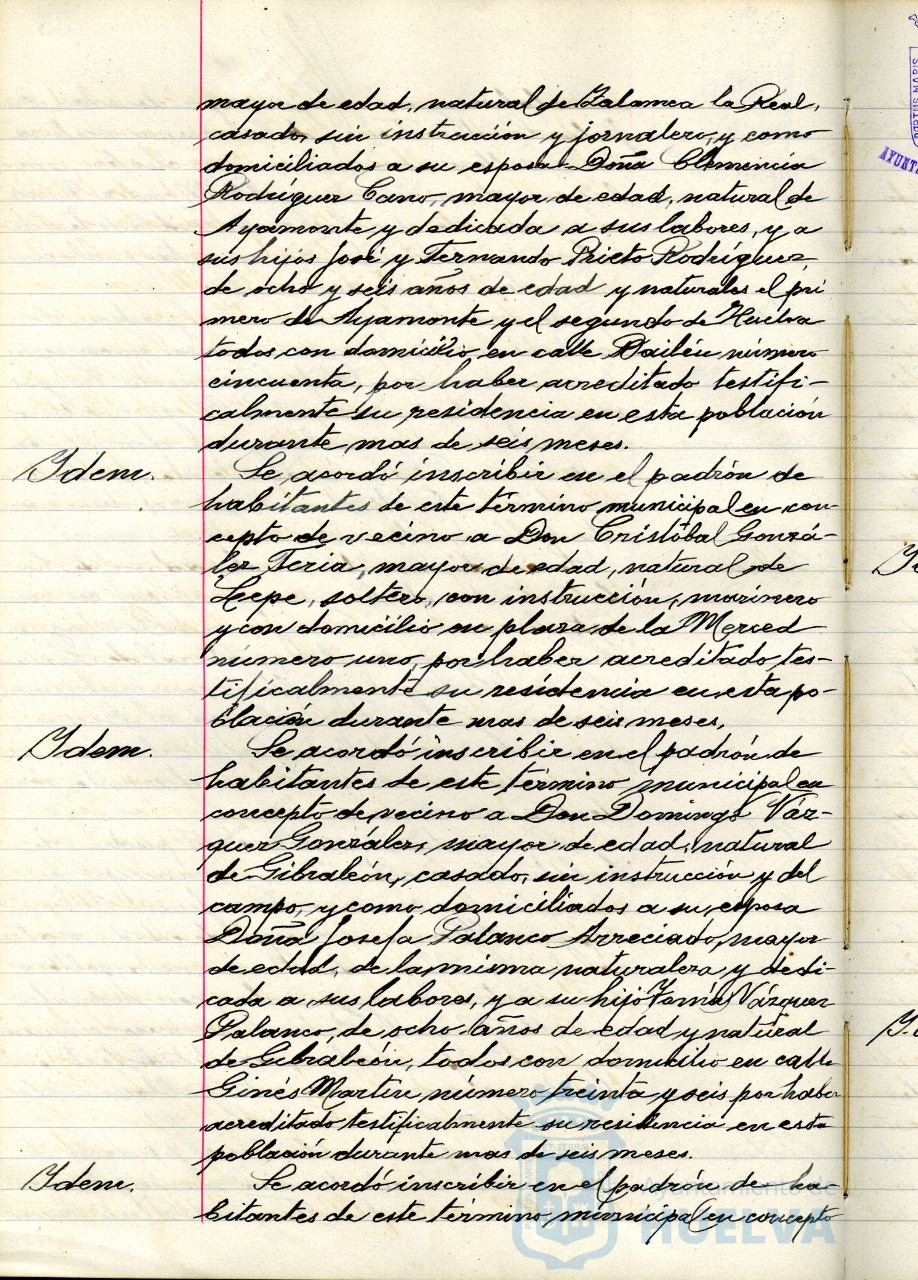 mayor de edad, natural de Zalamea la Real,
casado, sin instrucción y jornalero, y como
domiciliados a su esposa Doña Clemencia
Rodríguez Cano, mayor de edad, natural de
Ayamonte y dedicada a sus labores, y a
sus hijos José y Fernando Prieto Rodríguez,
de ocho y seis años de edad y naturales el pri
mero de Ayamonte y el segundo de Huelva
todos con domicilio en calle Bailén número
cincuenta, por haber acreditado testifi-
calmente su residencia en esta población
durante mas de seis meses.
Idem. Se acordó inscribir en el padrón de
habitantes de este término municipal en con-
cepto de vecino a Don Cristóbal Gonzá-
lez Feria, mayor de edad, natural de
Lepe, soltero, con instrucción, marinero
y con domicilio en plaza de la Merced
número uno, por haber acreditado tes-
tificalmente su residencia en esta po-
blación durante mas de seis meses.
Idem. Se acordó inscribir en el padrón de
habitantes de este término municipal en
concepto de vecino a Don Domingo Váz-
quez González, mayor de edad, natural
de Gibraleón, casado, sin instrucción y del
campo, y como domiciliados a su esposa
Doña Josefa Palanco Arreciado, mayor
de edad, de la misma naturaleza y dedi-
cada a sus labores, y a su hijo Tomás Vázquez
Palanco, de ocho años de edad y natural
de Gibraleón, todos con domicilio en calle
Ginés Martín número treinta y seis por haber
acreditado testificalmente su residencia en esta
población durante mas de seis meses.
Idem. Se acordó inscribir en el padrón de ha-
bitantes de este término municipal en concepto
Ayuntamiento de
HUELVA